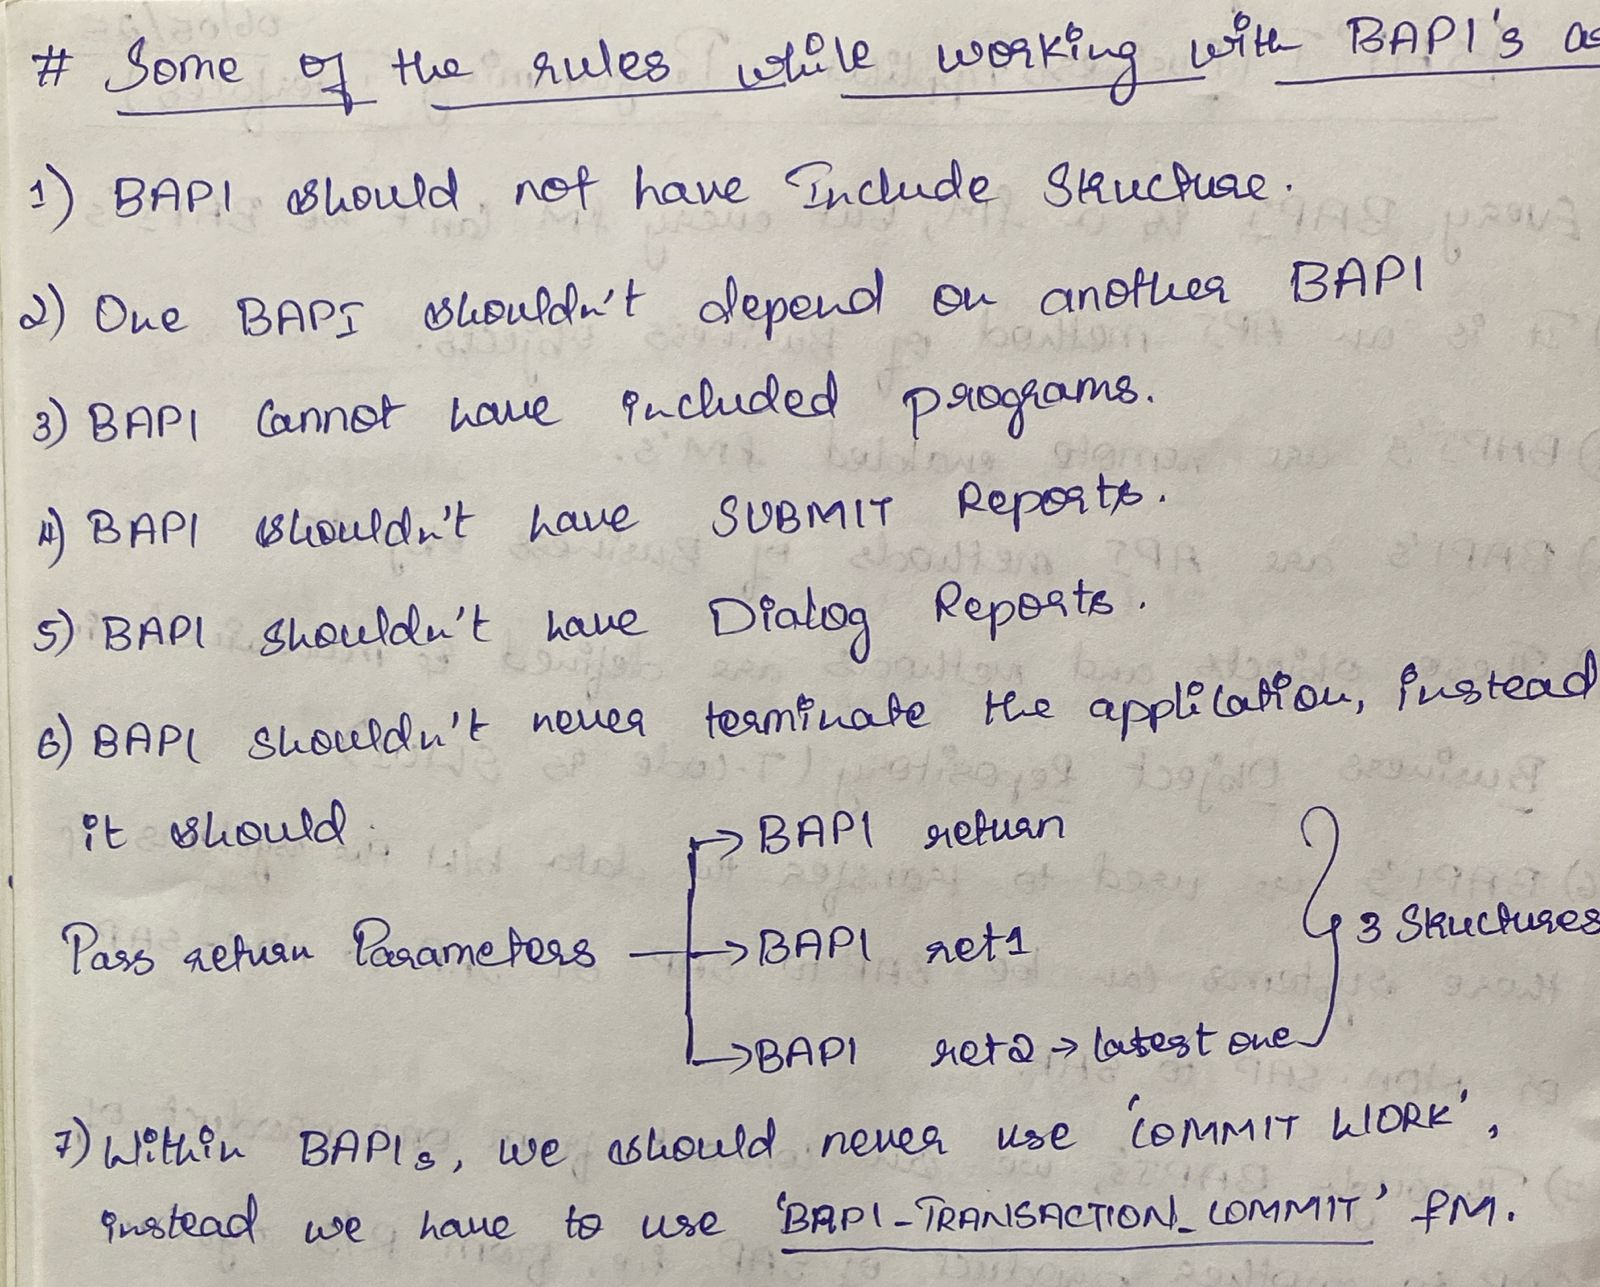 # Some of the rules while working with BAPI's as
1) BAPI should not have Include Structure.
2) One BAPI shouldn't depend on another BAPI
3) BAPI Cannot have included programs.
4) BAPI shouldn't have SUBMIT Reports.
5) BAPI shouldn't have Dialog Reports.
6) BAPI shouldn't never terminate the application, instead
it should.
Pass return Parameters
→ BAPI return
→ BAPI ret1
→ BAPI ret2 → latest one
3 Structures
7) Within BAPIs, we should never use 'COMMIT WORK',
instead we have to use 'BAPI_TRANSACTION_COMMIT' FM.